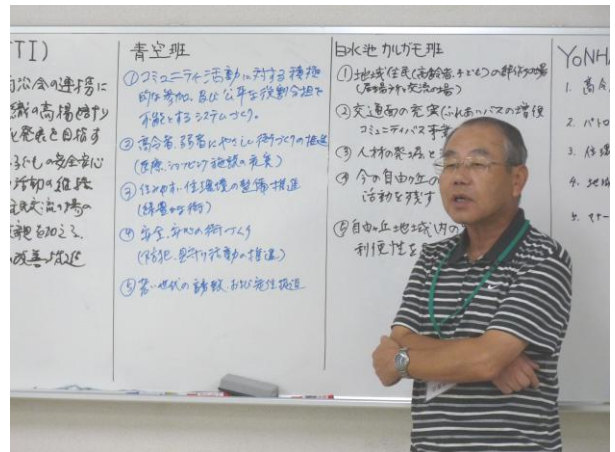 TTI)
の連携に
織の高揚
発表を目指す
らしの安全安心
活動の継続
民交流の場の
改善・推進
青空班
①コミュニティ活動に対する積極
的な参加、及び公平な役割分担を
可能とするシステムづくり。
②高令者、弱者にやさしい街づくりの推進
(医療、ショッピング施設の充実)
③住みやすい住環境の整備推進
(緑豊かな街)
④安全、安心の街づくり
(防犯、見守り活動の推進)
⑤若い世代の誘致、および定住推進
白水池カルガモ班
①地域住民(高齢者、子ども)の
(居場所と交流の場)
②交通面の充実(ふれあいバスの増役
コミュニティバス事業
③人材の発掘と
④今の自由ヶ丘の
活動を残す
⑤自由ヶ丘地域内の
利便性を
YoNHA
1. 高令
2. パトロ
3. 住環
4. 地域
5.